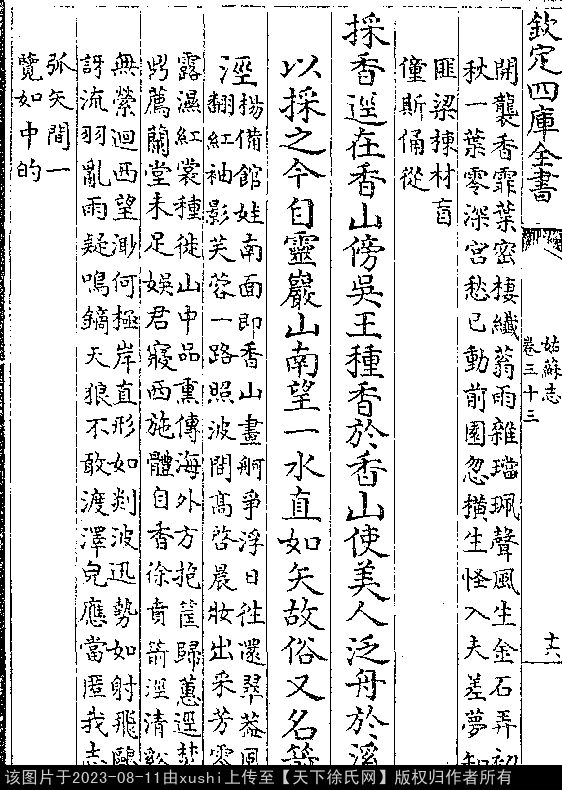 欽定四庫全書
姑蘇志
卷三十三
十六
開襲香霏葉密棲纖蓊雨雜璫珮聲風生金石弄初
秋一葉零深宮愁已動前園忽撗生怪入夫差夢知
匪梁棟材盲
僮斯俑從
採香逕在香山傍吳王種香於香山使美人泛舟於溪
以採之今自靈巖山南望一水直如矢故俗又名箭
涇
揚備館娃南面即香山畫舸爭浮日往還翠葢風
翻紅袖影芙蓉一路照波間高啓晨妝出采芳零
露濕紅裳種徙山中品熏傳海外方抱筐歸蕙逕焚
薦蘭堂未足娛君寢西施體自香徐賁箭涇清谿
無縈迴西望渺何極岸直形如剡波迅勢如射飛鷗
訝流羽亂雨疑鳴鏑天狼不敢渡澤應當匿我志
弧矢閒一
覽如中的
该图片于2023-08-11由xushi上传至【天下徐氏网】版权归作者所有